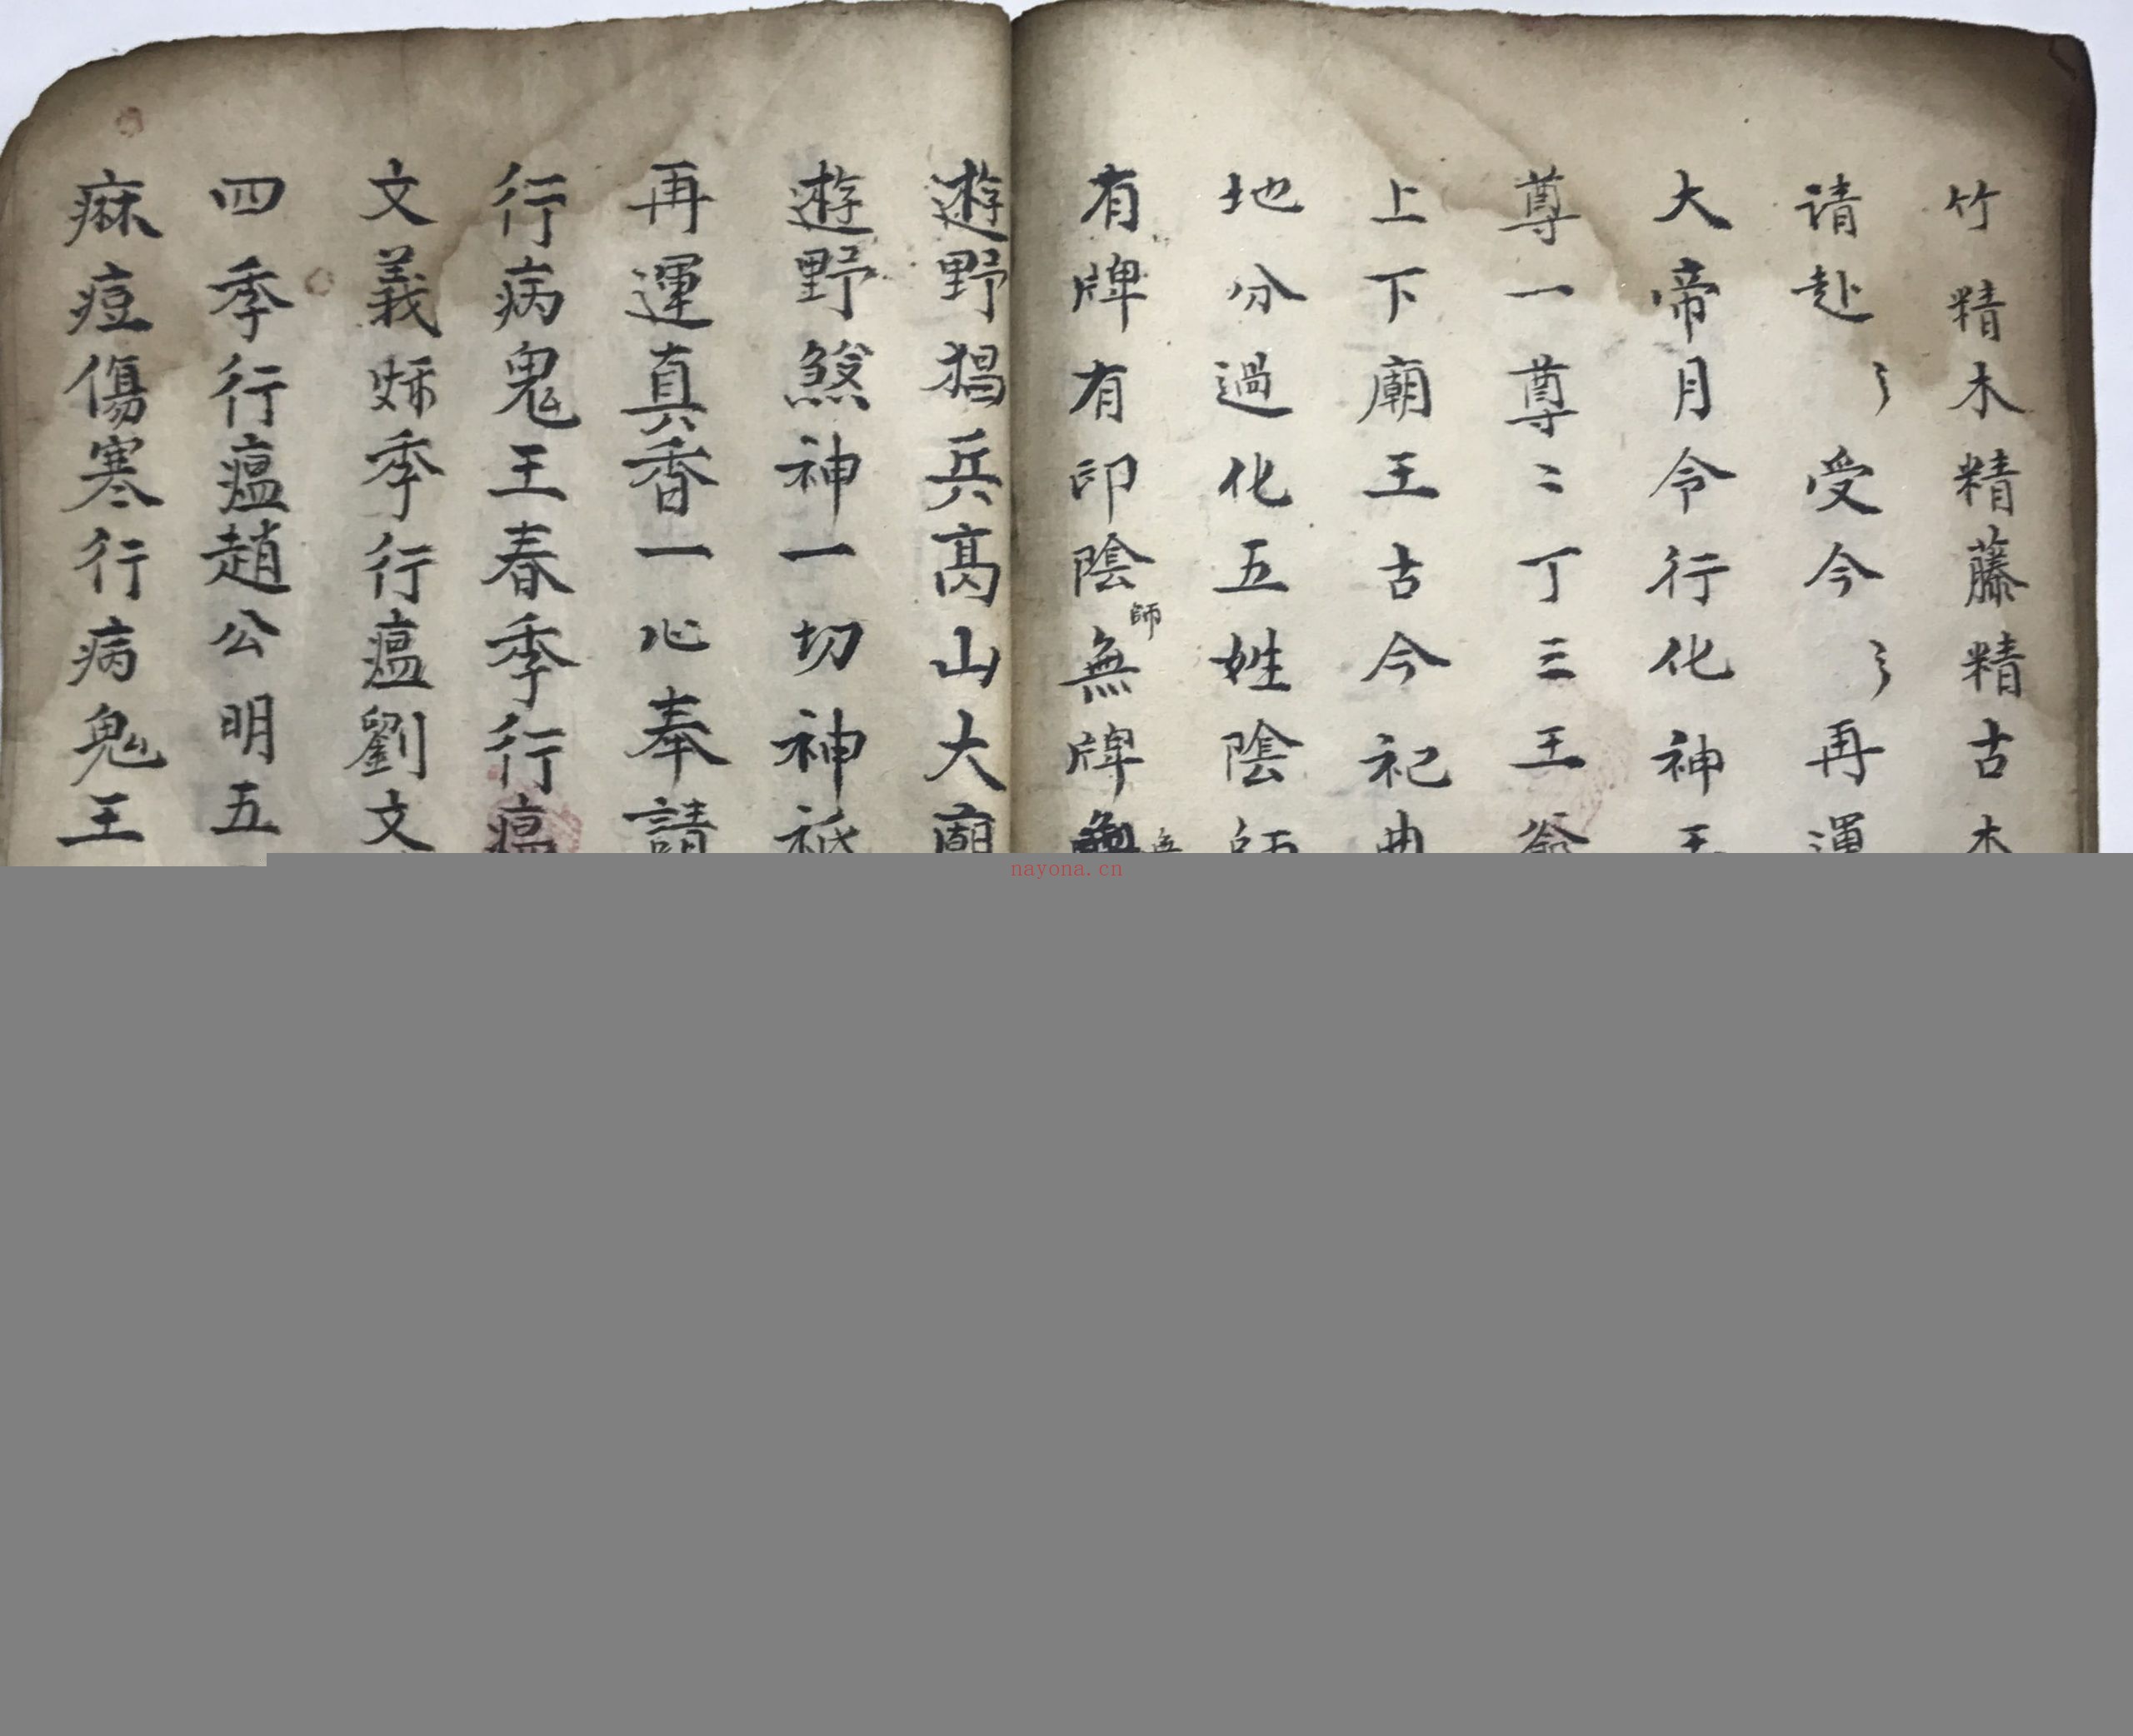 竹精木精藤精古木
请赴〻受今〻再運
大帝月令行化神王
尊一尊二丁三王爺
上下廟王古今祀典
地分過化五姓陰師
有牌有印陰師無牌
遊野猖兵高山大廟
遊野煞神一切神祇
再運真香一心奉請
行病鬼王春季行瘟
文義姊季行瘟劉文
四季行瘟趙公明五
痳痘傷寒行病鬼王
nayona.cn